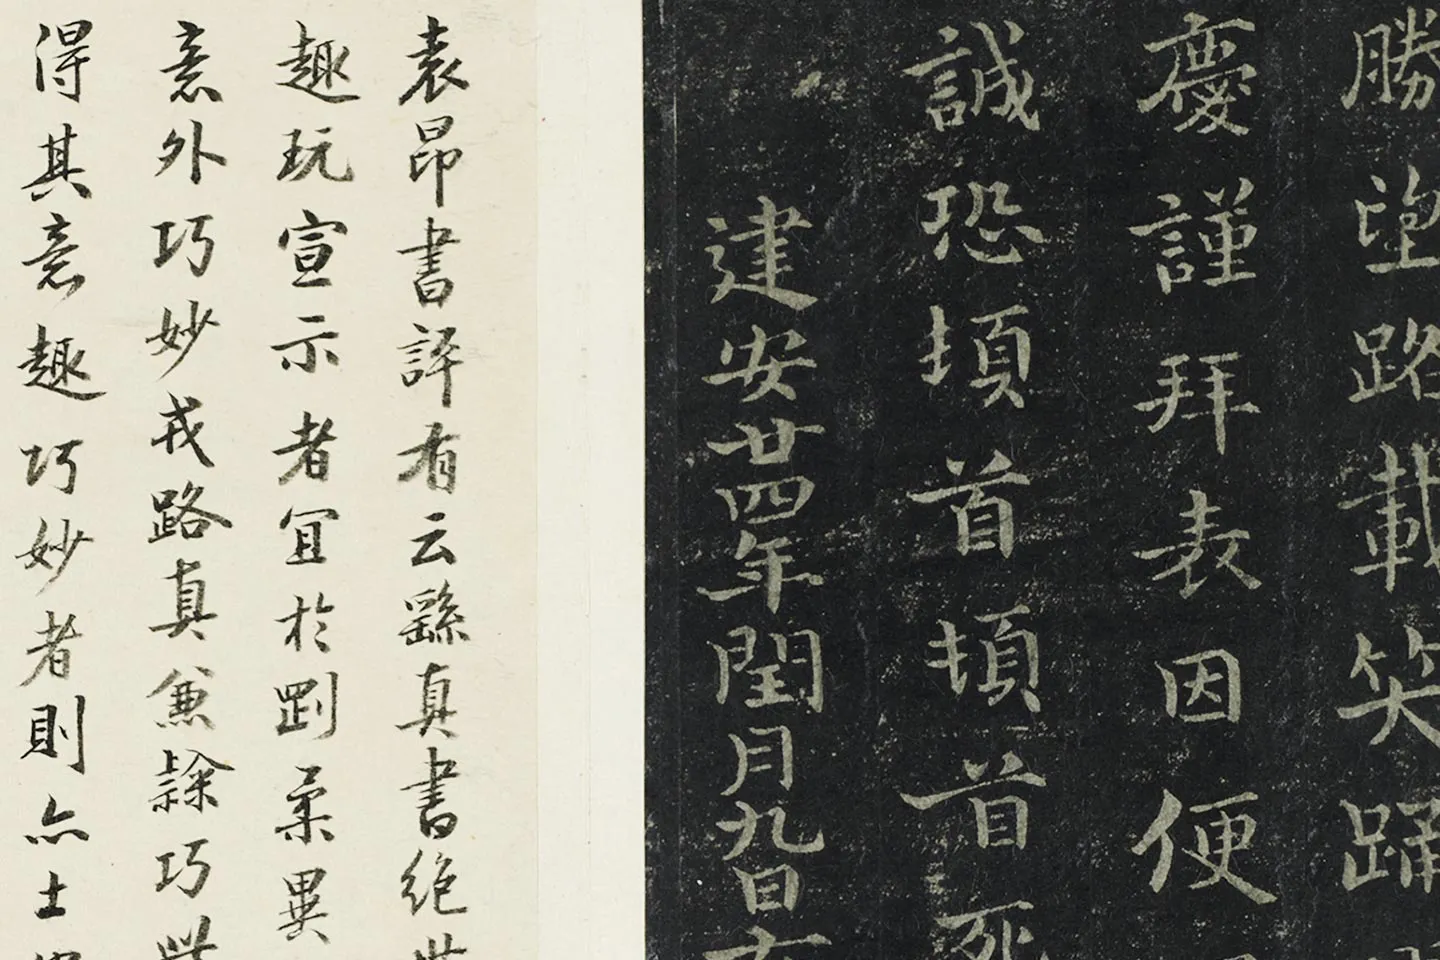 勝望路載笑踊
慶謹拜表因便
誠恐頓首頓首死
建安廿四年閏月九日
袁昂書評有云繇真書絕世
趣玩宣示者宜於剛柔異
意外巧妙戎路真兼隸巧
得其意趣巧妙者則亦士